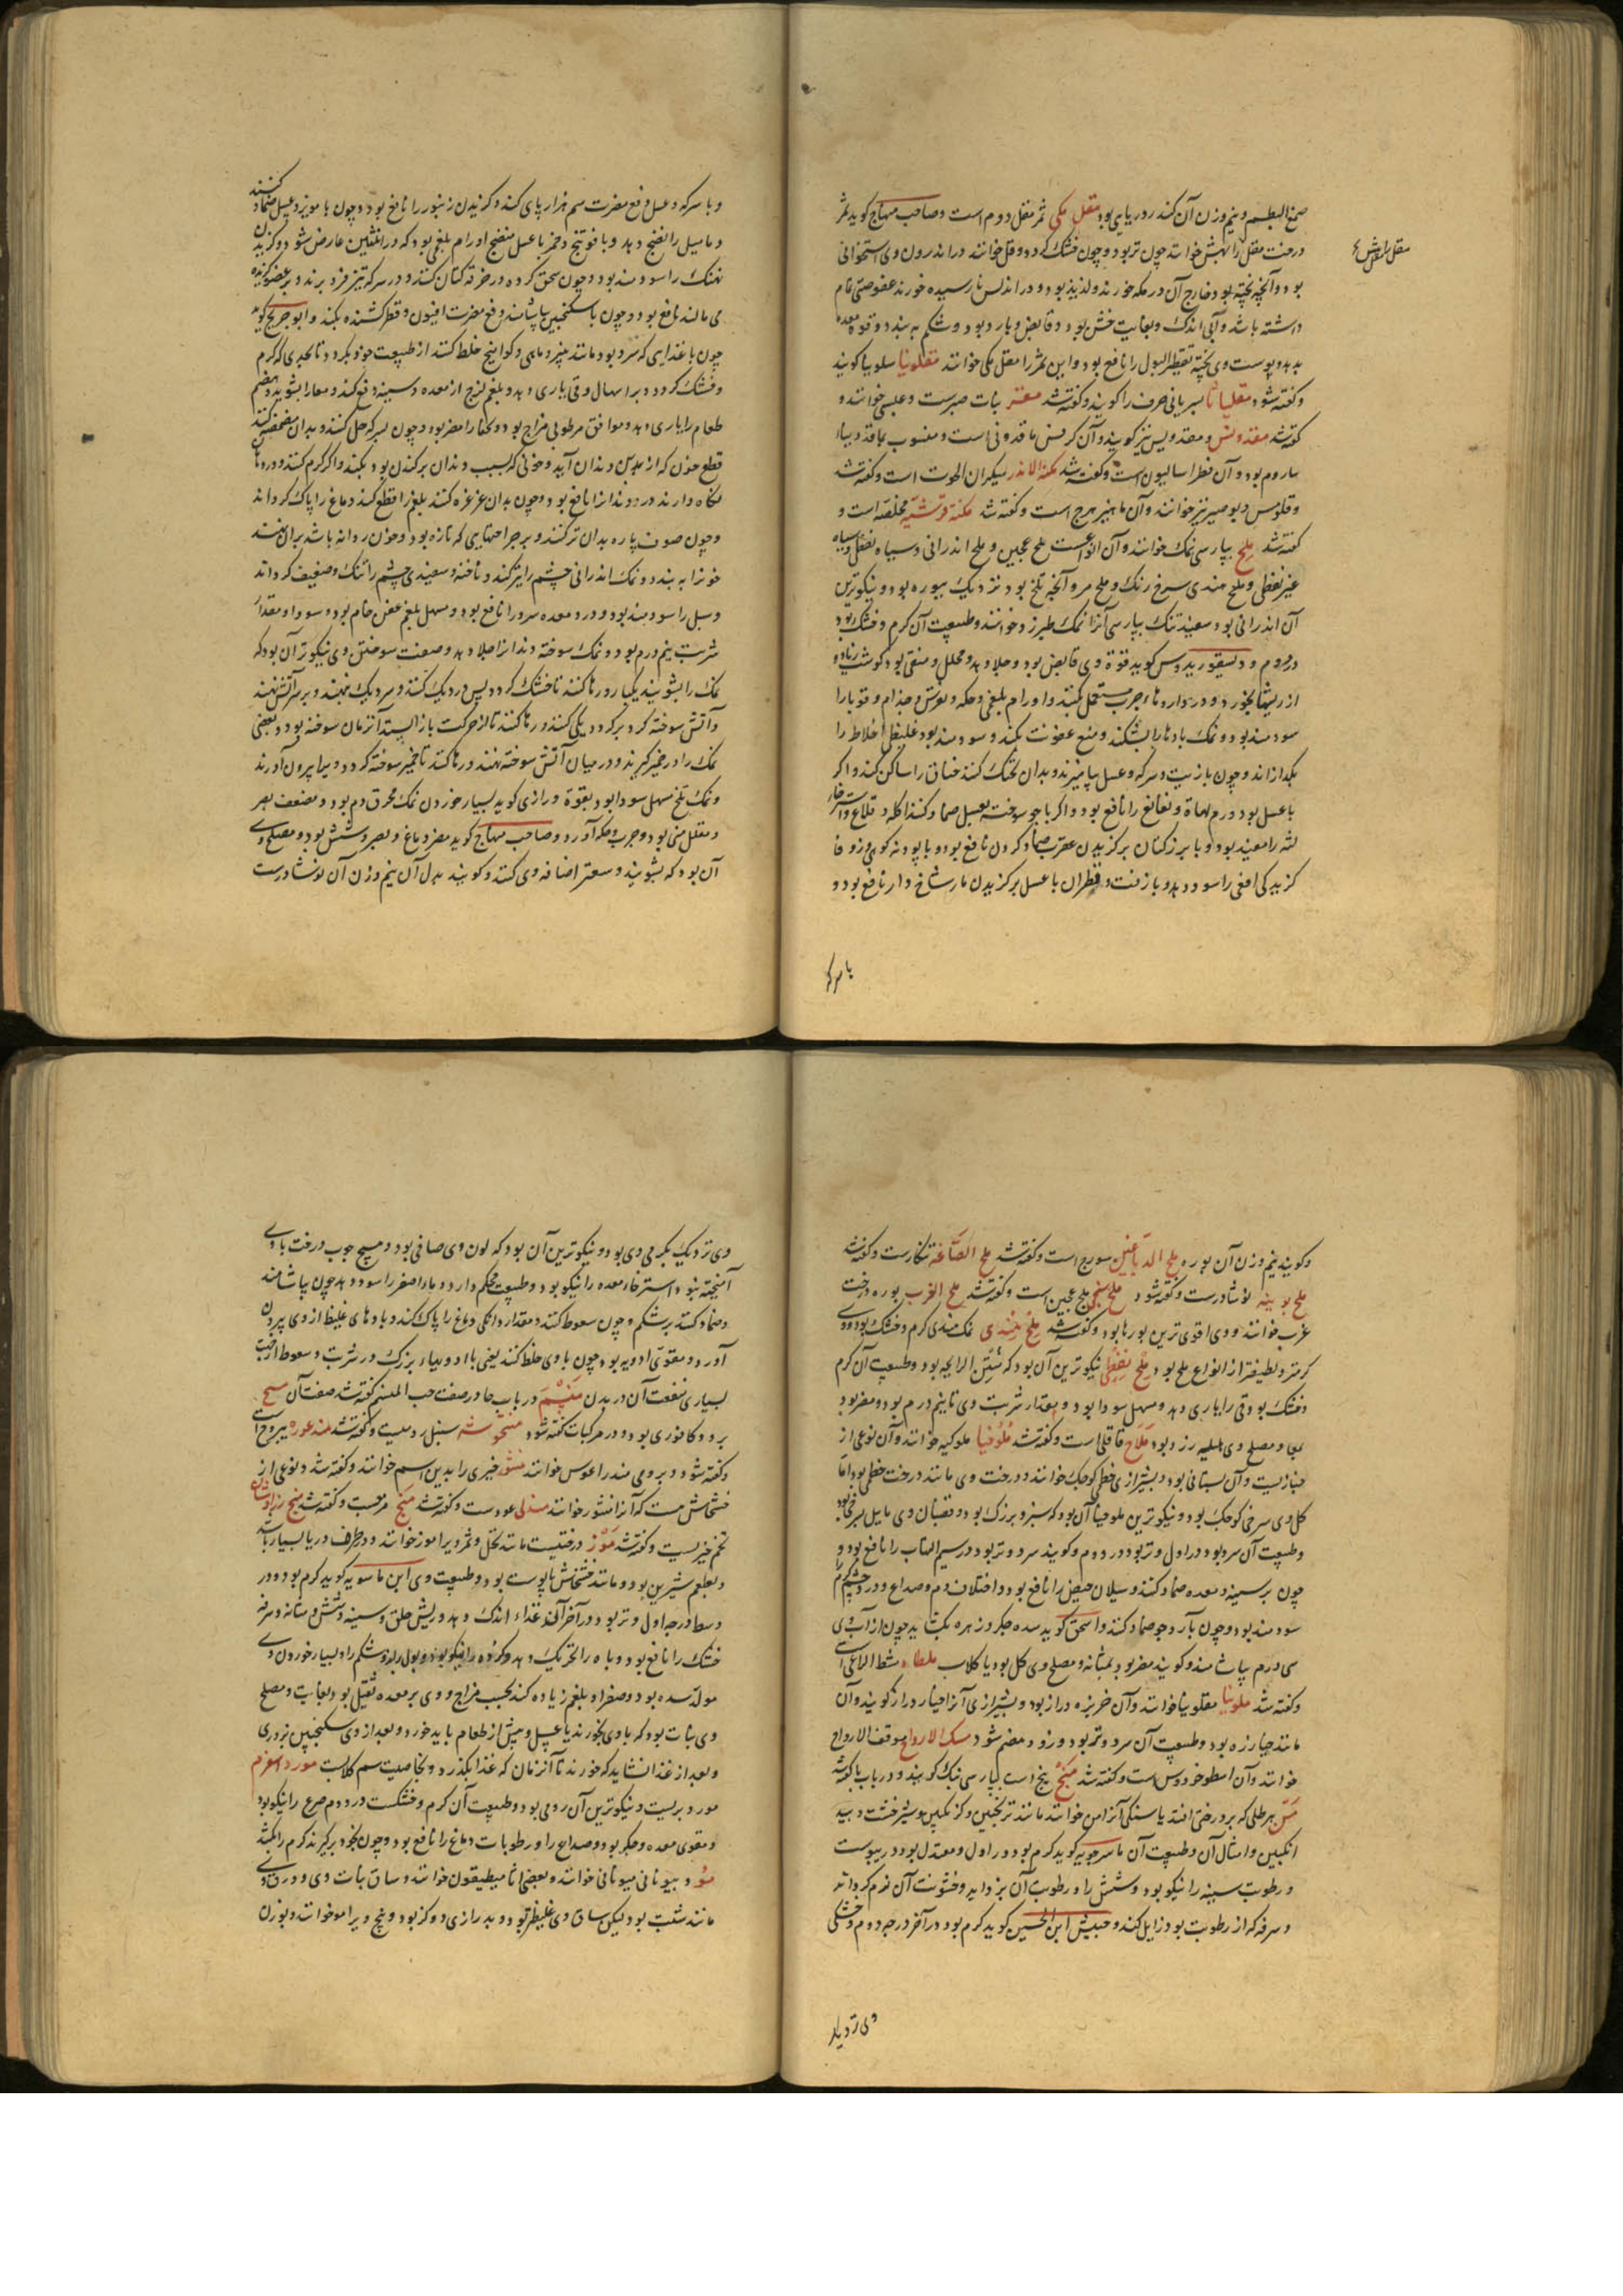 صمغ البطم و نیم وزن آن کندر دریایی بود مقل مکی ثمر مقل دوم است و صاحب منهاج کوید ثمر
درخت مقل را بهش خوانند چون تر بود و چون خشک کردد وقل خوانند در اندرون وی استخوانی
بود و آنچه پخته بود خارج آن در مکه خورند و لذیذ بود و در اندلس نارسیده خورند عفوصتی تمام
داشته باشد و آبی اندک و بغایت خش بود و قابض و بارد بود و شکم به بندد و قوة معده
بدهد و پوست وی پخته تقطیر البول را نافع بود و این ثمر را مقل مکی خوانند مقلونیا سلوبیا کویند
و کفته شود مقلیاثا بسریانی حرف را کویند و کفته شد مقر نبات صبرست و علسی خوانند و
کفته شد مقدونس و مقدویس نیز کویند و آن کرفس ماقدونی است و منسوب بماقدونیا
ماروم بود و آن فطراسالیون است و کفته شد مکنة الاندر سیکران الحوت است و کفته شد
و قلومس و بوصیر نیز خوانند و آن ماهیزهرج است و کفته شد مکنه قرشیه مخلصه است و
کفته شد ملح بپارسی نمک خوانند و آن انواعست ملح عجین و ملح اندرانی و سیاه نفطی و سیاه
غیر نفطی و ملح هندی سرخ رنک و ملح مر و آنچه تلخ بود نزدیک ببوره بود و نیکوترین
آن اندرانی بود سفید تنک بپارسی آنرا نمک طبرزد خوانند و طبیعت آن کرم و خشک بود
در دوم و دیسقوریدوس کوید قوة وی قابض بود و جلا دهد و محلل و منقی بود کوشت زیاده
از ریشها بخورد و در داروهاء جرب مستعمل کنند و اورام بلغمی و حکه و نقرس و جذام و قوبا را
سودمند بود و نمک بادها را بشکند و منع عفونت بکند و سودمند بود غلیظ اخلاط را
بکدازاند و چون با زیت و سرکه و عسل بیامیزند و بدان تحنک کنند خناق را ساکن کند و اکر
با عسل بود ورم لهاة و نغانغ را نافع بود و اکر با جو سوخته بعسل ضماد کنند اکله و قلاع و استرخاء
لثه را مفید بود و با بزر کتان بر کزیدن عقرب ضماد کردن نافع بود و با پودنه کوهی و زوفا
کزیدکی افعی را سود دهد و با زفت و قطران با عسل بر کزیدن مار شاخ دار نافع بود و
با سرکه
و با سرکه و عسل دفع مضرت سم هزارپای کند و کزیدن زنبور را نافع بود و چون با مویز و عسل ضماد کنند
دمامیل را نضج دهد و با فوتنج و خمر با عسل منضج اورام بلغمی بود که در انثیین عارض شود و کزیدن
نهنک را سودمند بود و چون سحق کرده در خرقه کتان کنند و در سرکه تیز فرو برند و بر عضو کزیده
می مالند نافع بود و چون با سکنجبین بیاشامند دفع مضرت افیون و فطر کشنده بکند و ابو جریج کوید
چون با غذایی که سرد بود مانند پنیر و ماهی و کوامیخ خلط کنند از طبیعت خود بکردد تا بحدی که کرم
و خشک کردد و بر اسهال و قی یاری دهد و بلغم لزج از معده و سینه دفع کند و معا را بشوید و هضم
طعام را یاری دهد و موافق مرطوبی مزاج بود و نحفا را مضر بود و چون بسرکه حل کنند و بدان مضمضه کنند
قطع خون که از بن دندان آید و خونی که بسبب دندان برکندن بود بکند و اکر کرم کنند و در دهان
نکاه دارند درد دندان را نافع بود و چون بدان غرغره کنند بلغم را قطع کند دماغ را پاک کرداند
و چون صوف پاره بدان تر کنند و بر جراحتهایی که تازه بود و خون روانه باشد بران نهند
خون را به بندد و نمک اندرانی چشم را تیز کند و ناخنه و سفیدی چشم را تنک و ضعیف کرداند
و سبل را سودمند بود و درد معده سرد را نافع بود و مسهل بلغم عفن خام بود و سودا و مقدار
شربت نیم درم بود و نمک سوخته دندان را جلا دهد و صنعت سوختن وی نیکوتر آن بود که
نمک را بشویند یکبار و رها کنند تا خشک کردد پس در دیک کنند و سر دیک نهند و بر سر آتش نهند
و آتش سوخته کرد بر کرد دیکی کنند و رها کنند تا از حرکت باز ایستد آنزمان سوخته بود و بعضی
نمک را در خمیر کیرند و در میان آتش سوخته نهند و رها کنند تا خمیر سوخته کردد و ویرا بیرون آورند
و نمک تلخ مسهل سودا بود بقوة و رازی کوید بسیار خوردن نمک محرق دم بود و مضعف بصر
و مقلل منی بود و جرب و حکه آورد و صاحب منهاج کوید مضر دماغ و بصر و شش بود و مصلح وی
آن بود که بشویند و سعتر اضافه وی کنند و کویند بدل آن نیم وزن آن نوشادرست
مقل ارض
و کویند نیم وزن آن بوره ملح الدباغین سورج است و کفته شد ملح الصاغه تنکارست و کفته شد
ملح بوینه نوشادرست و کفته شود ملح سنجی ملح عجین است و کفته شد ملح الغرب بوره درخت
غرب خوانند و وی اقوی ترین بورها بود و کفته شد ملح هندی نمک هندی کرم و خشک بود و وی
کرمتر و لطیفتر از انواع ملح بود ملح نفطی نیکوترین آن بود که منتن الرایحه بود و طبیعت آن کرم
و خشک بود قی را یاری دهد و مسهل سودا بود و مقدار شربت وی تا نیم درم بود و مضر بود
بمعا و مصلح وی هلیله زرد بود ملاح قاقلی است و کفته شد ملوخیا ملوکیه خوانند و آن نوعی از
خبازیست و آن بستانی بود و بشیرازی خطمی کوچک خوانند و درخت وی مانند درخت خطمی بود اما
کل وی سرخی کوچک بود و نیکوترین ملوخیا آن بود که سبز و بزرک بود و قضبان وی مایل بسرخی بود
و طبیعت آن سرد بود در اول و تر بود در دوم و کویند سرد و تر بود در سیم التهاب را نافع بود و
چون بر سینه و معده ضماد کنند و سیلان حیض را نافع بود و اختلاف دم و صداع و درد چشم کرم
سودمند بود و چون با آرد جو ضماد کنند و اسحق کوید سده جکر و زهره بکشاید چون از آب وی
سی درم بیاشامند و کویند مضر بود بمثانه و مصلح وی کل بود یا کلاب ملطاء مشط الراعی است
و کفته شد ملونیا مقلونیا خوانند و آن خربزه دراز بود و بشیرازی آنرا خیار دراز کویند و آن
مانند خیارزه بود و طبیعت آن سرد و تر بود و زود هضم شود ممسک الارواح موقف الارواح
خوانند و آن اسطوخودوس است و کفته شد منج بنج است بپارسی بنک کویند و در باب با کفته شد
من هر طلی که بر درختی افتد یا سنکی آنرا من خوانند مانند ترنجبین و کزنکبین و شیرخشت و بید
انکبین و امثال آن و طبیعت آن ماسرجویه کوید کرم بود در اول و معتدل بود در یبوست
و رطوبت سینه را نیکو بود و شش را و رطوبت آن بزداید و خشونت آن نرم کرداند
و سرفه که از رطوبت بود زایل کند و حبیش ابن الحسین کوید کرم بود در آخر درجه دوم و خشکی
وی نزدیک
وی نزدیک بکرمی وی بود و نیکوترین آن بود که لون وی صافی بود و هیچ چوب درخت با وی
آمیخته نبود و استرخاء معده را نیکو بود و طبیعت محکم دارد و ماء اصفر را سود دهد چون بیاشامند
و ضماد کنند بر شکم و چون سعوط کنند و مقدار دانکی دماغ را پاک کند و بادهای غلیظ از وی بیرون
آورد و مقوی ادویه بود چون با وی خلط کنند یعنی با ادویهاء بزرک در شربت و سعوط از جهت
بسیاری منفعت آن در بدن منشم در باب حا در صفت حب المنسم کفته شد صفت آن
برد و کافوری بود و در مرکبات کفته شود منتجوشه سنبل رومیست و کفته شد مندغوره یبروح است
و کفته شود و برومی مندراغوس خوانند منثور خیری را بدین اسم خوانند و کفته شد و نوعی از
خشخاش هست که آنرا منثور خوانند مندلی عودست و کفته شد منج مرحبست و کفته شد
تخم خیریست و کفته شد موز درختیست مانند نخل و ثمر ویرا موز خوانند و در طرف دریا بسیار باشد
و بطعم شیرین بود و مانند خشخاش با پوست بود و طبیعت وی ابن ماسویه کوید کرم بود در
وسط درجه اول و تر بود در آخر آن و غذاء اندک دهد و ریش حلق و سینه و شش و مثانه و سرفه
خشک را نافع بود و باه را تحریک دهد و کرده را نیکو بود و بول براند و شکم را و بسیار خوردن وی
مولد سده بود و صفرا و بلغم زیاده کند بحسب مزاج و وی بر معده ثقیل بود بغایت و مصلح
وی نبات بود که با وی بخورند یا عسل و پیش از طعام باید خورد و بعد از وی سکنجبین بزوری
و بعد از غذا نشاید که خورند تا آنزمان که غذا بکذرد و بخاصیت سم کلابست مورد اسفرم
مورد بریست و نیکوترین آن رومی بود و طبیعت آن کرم و خشکست در دوم صرع را نیکو بود
و مقوی معده و جکر بود و صداع را و رطوبات دماغ را نافع بود و چون بخود برکیرند کرم را بکشد
مو بیونانی میونانی خوانند و بعضی اثامبطیقون خوانند و ساق نبات وی و ورق وی
مانند شبت بود لیکن ساق وی غلیظتر بود و بدرازی دو کز بود و بیخ ویرا مو خوانند و بوزن